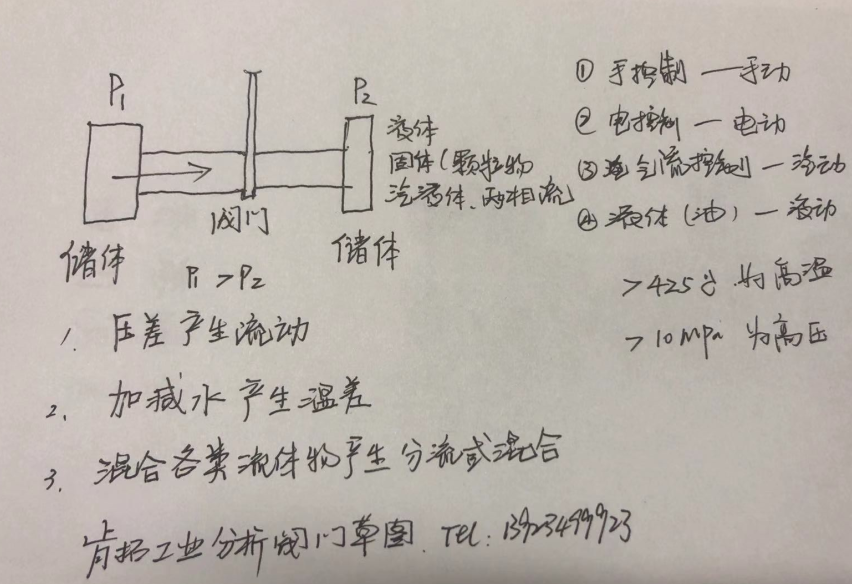 P1
P2
阀门
储体
储体
P1 > P2
液体
固体(颗粒物
汽液体、两相流)
① 手控制 — 手动
② 电控制 — 电动
③ 气流控制 — 汽动
④ 液体(油) — 液动
>425℃ 为高温
>10 MPa 为高压
1. 压差产生流动
2. 加减水产生温差
3. 混合各类流体物产生分流或混合
肯拓工业分析阀门草图. TEL: 13923499923